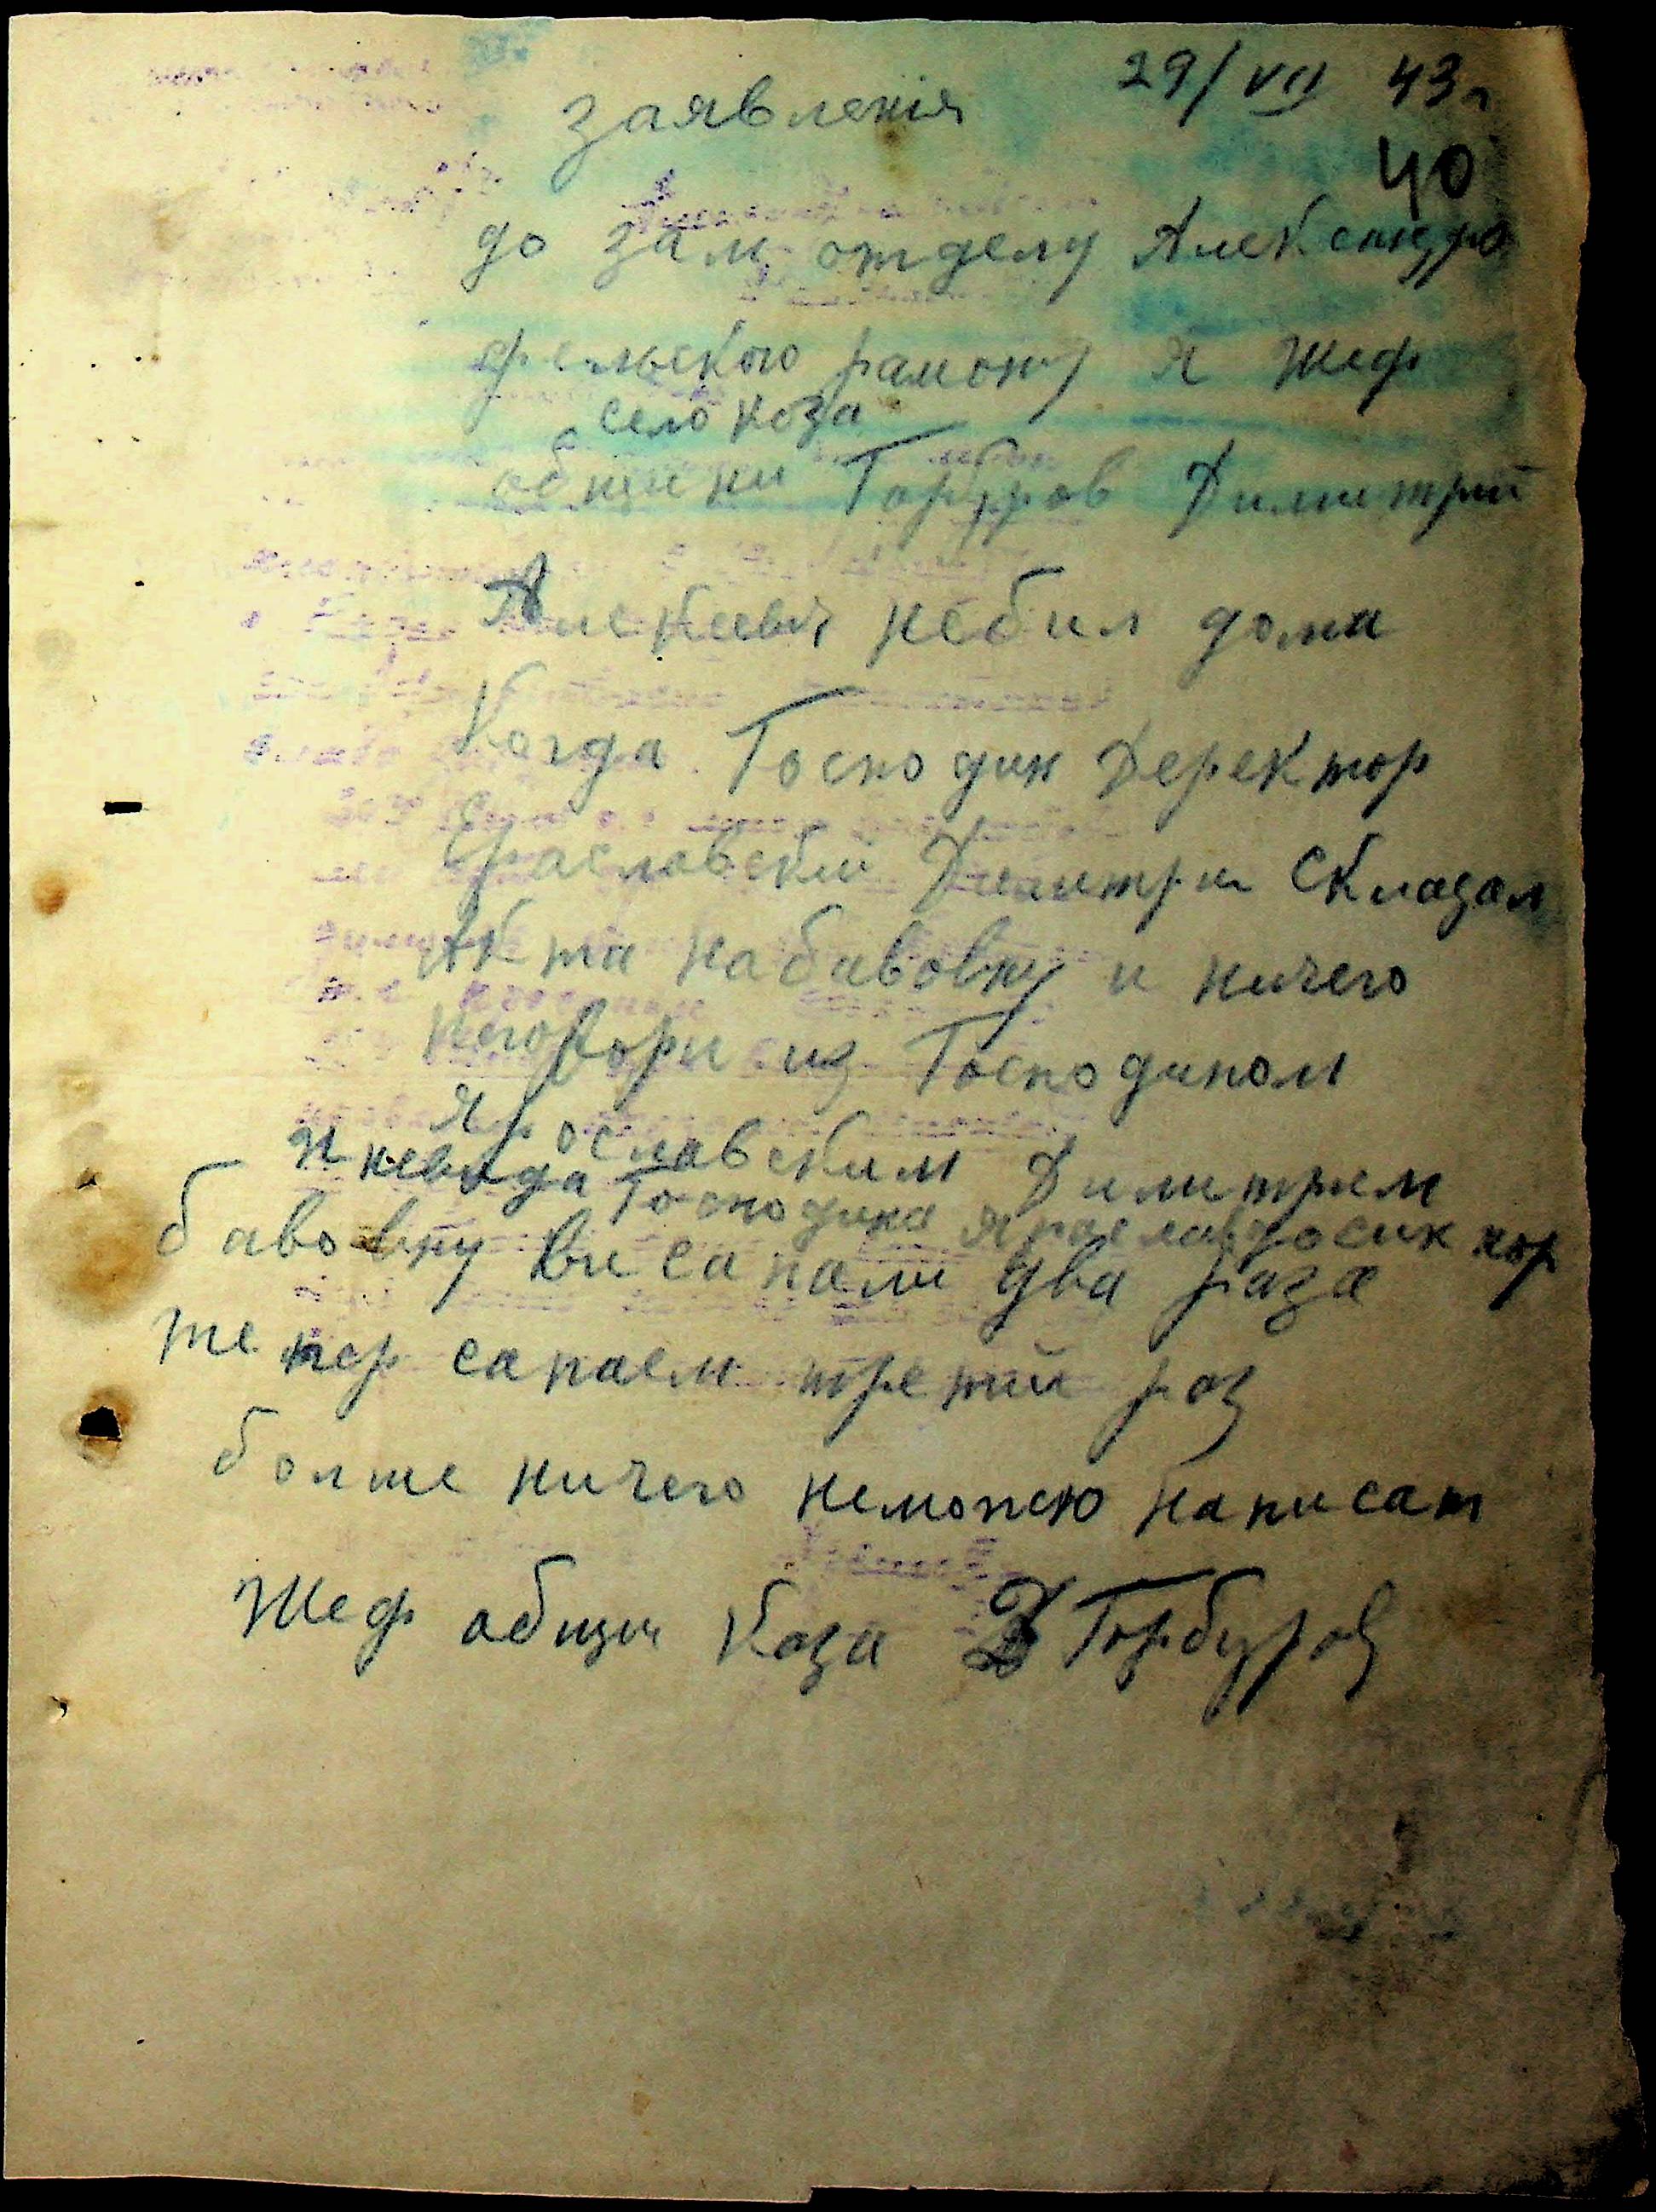 29/VII 43г
заявленія
40
до зам отделу Александро
фельского рамону Я Шеф
село коза
общини Горбуров Димитрий
Алексеевич небил дома
Когда Господин Деректор
Ерасловский Димитри Складал
Акта набавовну и ничего
неговори из Господином
Ярославским Димитрием
И невида Господина Ярослав до сих пор
бавовну ви сапали два раза
тепер сапаем третий раз
болше ничего неможею написат
Шеф общи Коза Д Горбуров